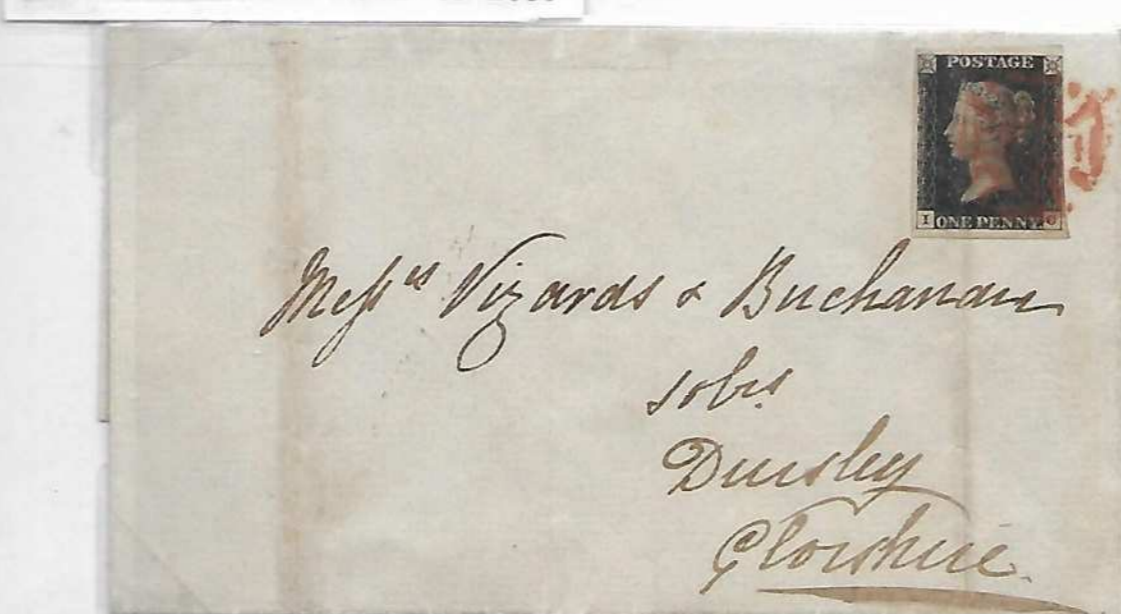 POSTAGE
I ONE PENNY G
Messrs Vizards & Buchanan
Solrs
Dursley
Glorshire